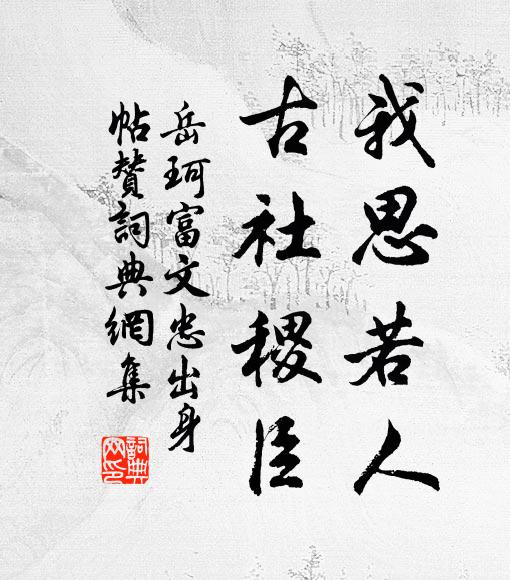 我思若人
古社稷臣
岳珂富文忠出身
帖贊詞典網集
詞典網印